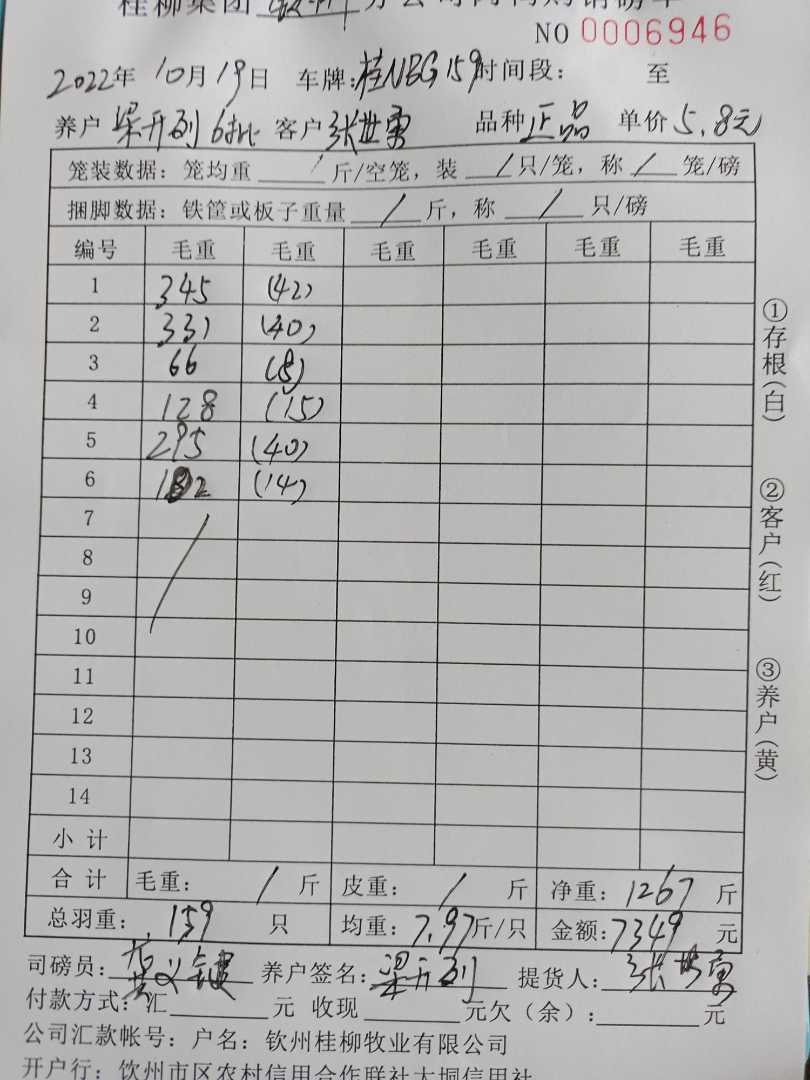 桂柳集团 钦州 分公司 购销磅单
NO 0006946
2022年 10月19日 车牌:桂NBG159 时间段: 至
养户 梁开列 6批 客户 张世 品种 正品 单价 5.8元
笼装数据: 笼均重 / 斤/空笼, 装 / 只/笼, 称 / 笼/磅
捆脚数据: 铁筐或板子重量 / 斤, 称 / 只/磅
编号 毛重 毛重 毛重 毛重 毛重 毛重
1 345 (42)
2 331 (40)
3 66 (8)
4 128 (15)
5 295 (40)
6 102 (14)
7
8
9
10
11
12
13
14
小计
合计 毛重: / 斤 皮重: / 斤 净重: 1267 斤
总羽重: 159 只 均重: 7.97斤/只 金额: 7349 元
司磅员: 养户签名: 梁开列 提货人: 张
付款方式: 汇 元 收现 元欠(余): 元
公司汇款帐号: 户名: 钦州桂柳牧业有限公司
开户行: 钦州市区农村信用合作联社大垌信用社
①存根(白)
②客户(红)
③养户(黄)